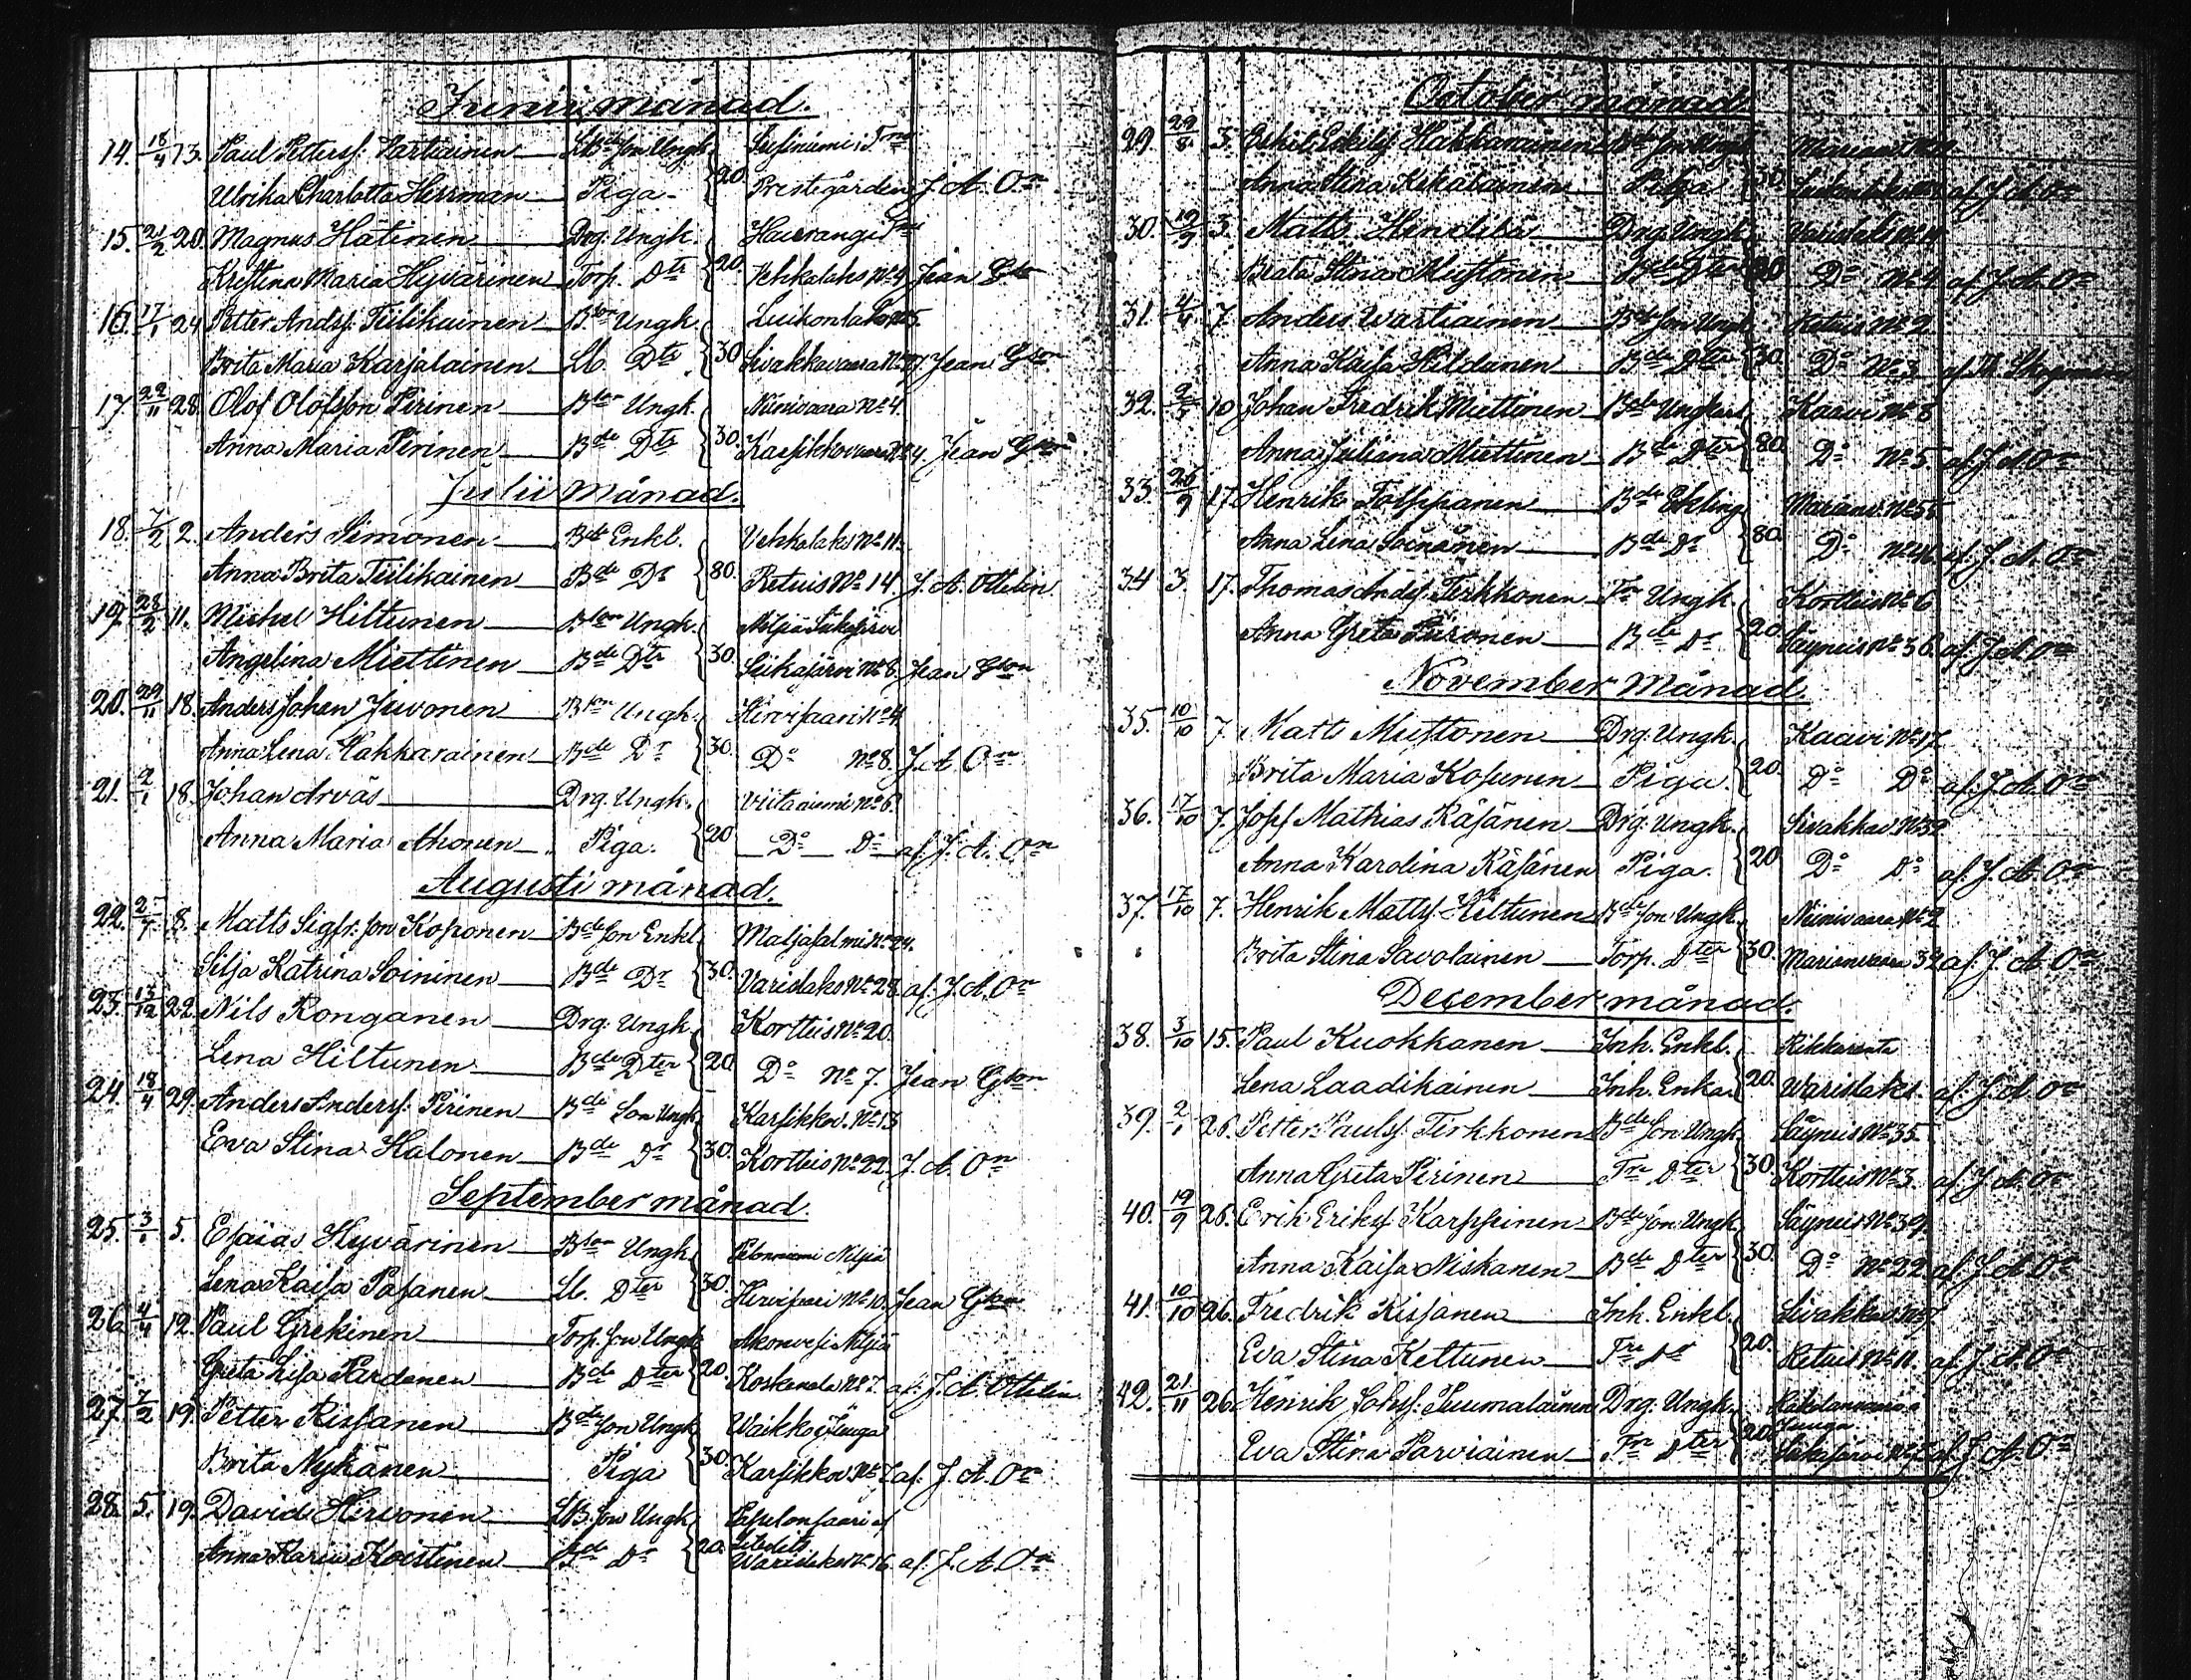 Junii månad.
14. 18/4 13. Paul Petterss. Vartiainen Son Ungk.
Ulrika Charlotta Herrman Piga 20. Prestegården J. A. Orn
15. 21/2 20. Magnus Hätinen Drg. Ungk.
Kristina Maria Hyvärinen Torp. Dtr 20. Vehkalaks No 4. Jean Gson
16. 17/1 24. Petter Andss. Tiilikainen Bson Ungk. Luikonlaks
Brita Maria Karjalainen Lb. Dtr 30. Sivakkavaara Jean Gson
17. 22/11 28. Olof Olofsson Pirinen Bson Ungk. Niinivaara No 4.
Anna Maria Pirinen Bde Dtr 30. Karsikkovaara No 4. Jean Gson
Julii Månad.
18. 7/2 2. Anders Simonen Bde Enkl. Vehkalaks No 11.
Anna Brita Tiilikainen Bde Dr 80. Retuis No 14. J. A. Ottelin
19. 28/2 11. Michel Hiltunen Bson Ungk.
Angelina Miettinen Bde Dtr 30. Siikajärvi No 8. Jean Gson
20. 29/11 18. Anders Johan Juvonen Bson Ungk. Hirvisaari No 4.
Anna Lena Hakkarainen Bde Dr 30. Do No 8. J. A. Orn
21. 2/1 18. Johan Arväs Drg. Ungk. Viitaniemi No 6.
Anna Maria Ahonen Piga. 20 Do Do af J. A. Orn
Augusti månad.
22. 8. Matts Sigfr. son Koponen Bde Son Enkl. Maljasalmi No 24.
Silja Katrina Soininen Bde Dr 30. Varislaks No 28. af J. A. Orn
23. 13/12 22. Nils Ronganen Drg. Ungk. Kortteis No 20.
Lena Hiltunen Bde Dter 20. Do No 7. Jean Gson
24. 18/4 29. Anders Anderss. Pirinen Bde Son Ungk. Karsikkov. No 13
Eva Stina Halonen Bde Dr 30. Kortteis No 22. J. A. Orn
September månad.
25. 3/1 5. Esaias Hyvärinen Bson Ungk. Nilsiä
Lena Kaisa Pasanen Lb. Dter 30. Hirvisaari No 10. Jean Gson
26. 4/4 12. Paul Grekinen Torp. Son Ungk. Akonvesi Nilsiä
Greta Lisa Pardanen Bde Dter 20. Koskenala No 7. af J. A. Ottelin
27. 7/2 19. Petter Rissanen Bde Son Ungk. Waikko Juuga
Brita Nykänen Piga 30. Karsikkov. No 7 af J. A. Orn
28. 5. 19. David Hirvonen LB. Son Ungk.
Anna Karin Koistinen Bde Dr 20. Varislaks No 16. af J. A. Orn
October månad
29. 29/8 3. Eskil Eskilss. Hakkarainen Bde Son Ungk.
Anna Stina Kekäläinen Piga 30. af J. A. Orn
30. 19/9 3. Matts Drg. Ungk. Varislaks
Beata Stina Mustonen Bde Dter 20 Do No 4. af J. A. Orn
31. 4/9 7. Anders Wartiainen Bde Son Ungk. Retuis No 2
Anna Kaisa Hildunen Bde Dter 30. Do No 3
32. 10 Johan Fredrik Miettinen Bde Ungkarl Kaavi No 8
Anna Juliana Miettinen Bde Dter 80. Do No 5. af J. A. Orn
33. 26/9 17. Henrik Toppanen Bde Ekling
Anna Lena Soinänen Bde Dr 80. Do af J. A. Orn
34 3. 17. Thomas Andss. Tirkkonen Fr Ungk. Kortteis No 6
Anna Greta Piironen Bde Dr 20. Säyneis No 36. af J. A. Orn
November Månad.
35. 10/10 7. Matts Mustonen Drg. Ungk. Kaavi No 17
Brita Maria Kosunen Piga. 20. Do Do af J. A. Orn
36. 17/10 7. Josef Mathias Räsänen Drg. Ungk. Sivakkav. No 32
Anna Karolina Räsänen Piga. 20. Do Do af J. A. Orn
37. 17/10 7. Henrik Matts. Hiltunen Bde Son Ungk. Niinivaara No 2
Brita Stina Savolainen Torp. Dter 30. Marianvaara 32 af J. A. Orn
December månad.
38. 3/10 15. Paul Kuokkanen Inh. Enkl. Rikkaranta
Lena Laadikainen Inh. Enka. 20. Warislaks. af J. A. Orn
39. 2/1 26. Petter Paulss. Tirkkonen Bde Son Ungk. Säyneis No 35.
Anna Greta Pirinen Fr Dter 30. Kortteis No 3. af J. A. Orn
40. 19/9 26. Erik Erikss. Karppinen Bde Son Ungk. Säyneis No 39.
Anna Kaisa Niskanen Bde Dter 30. Do No 22. af J. A. Orn
41. 10/10 26. Fredrik Rissanen Inh. Enkl. Sivakkav.
Eva Stina Keltunen Fr Dr 20. Retuis No 11. af J. A. Orn
42. 21/11 26. Henrik Johss. Tuumalainen Drg. Ungk. Juuga
Eva Stina Parviainen Fr Dter 20. af J. A. Orn